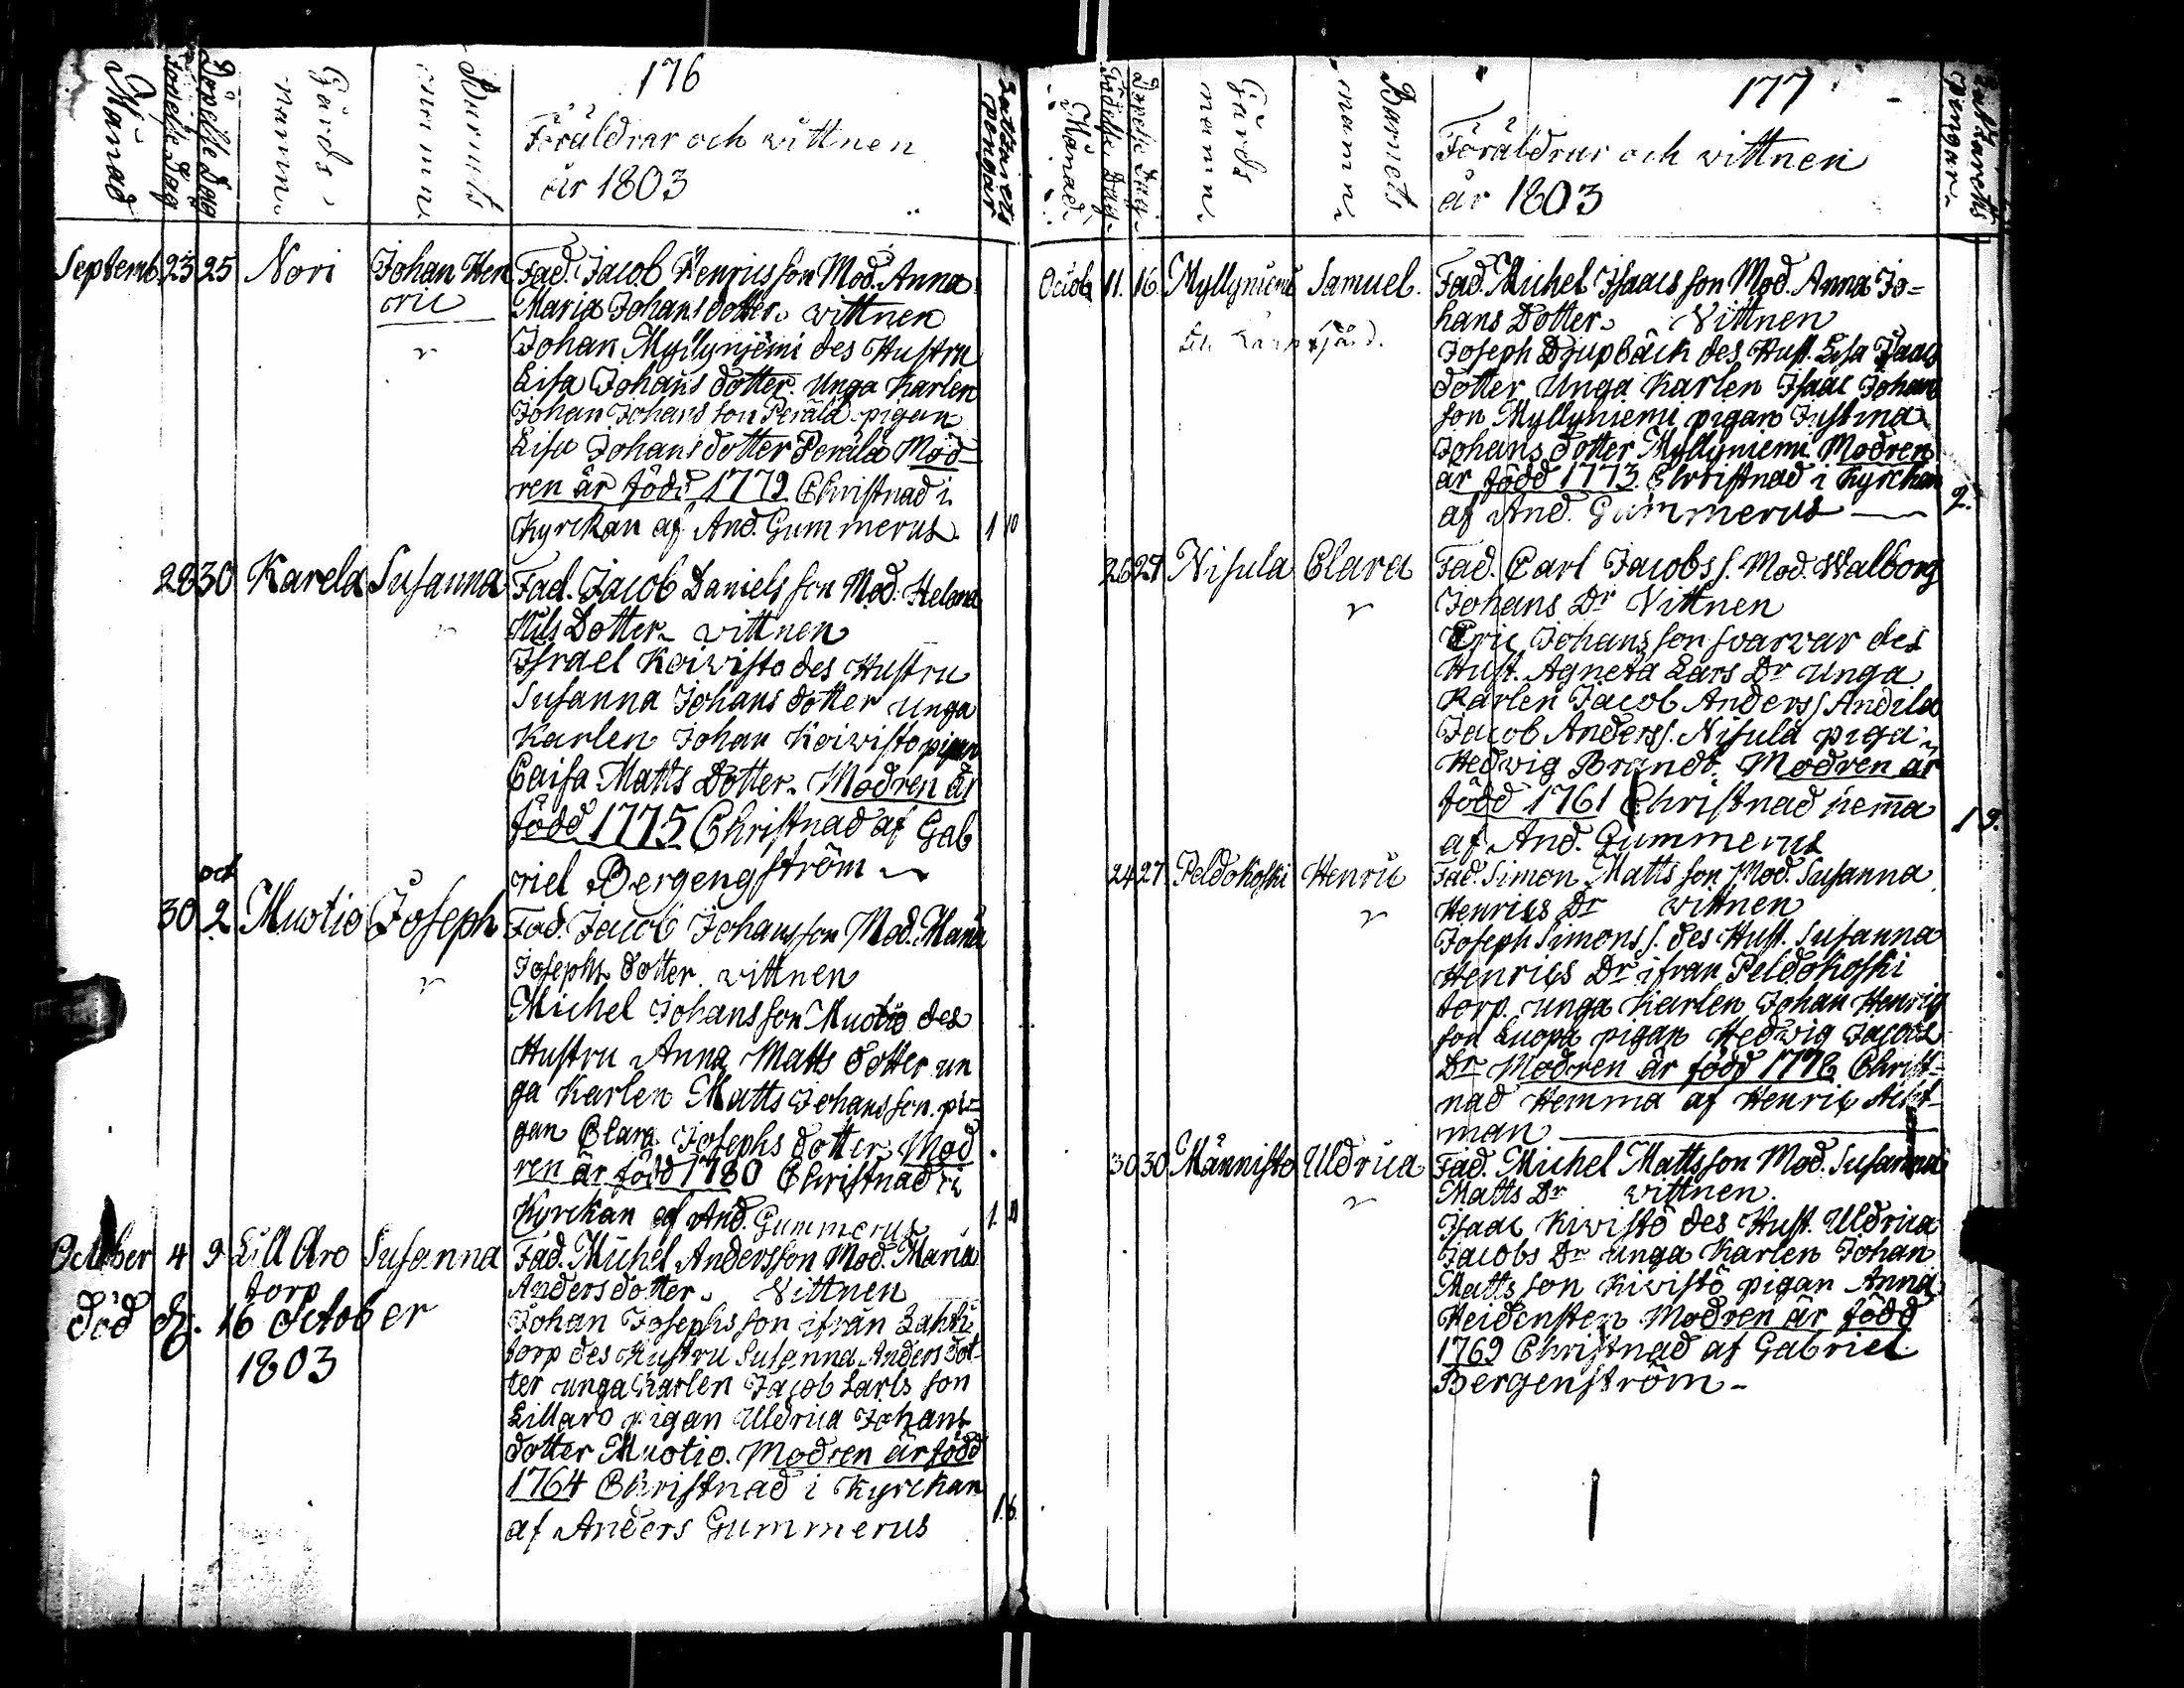 176
Månad
Födelse Dag
Döpelse Dag
Gårds namn
Barnets namn
Föräldrar och vittnen
år 1803
pengar
Septemb. 23 25 Nori Johan Hen Fad. Jacob Henricsson Mod. Anna
ric Maria Johans dotter. vittnen
Johan Myllyniemi des Hustru
Lisa Johans dotter. Unga Karlen
Johan Johans son Perälä. pigan
Lisa Johans dotter Perälä Mod
ren är född 1779 Christnad i
Kyrckan af And. Gummerus. 1 10
28 30 Karela Susanna Fad. Jacob Daniels son Mod. Helena
Nils Dotter. vittnen
Israel Koivisto des Hustru
Susanna Johans dotter unga
Karlen Johan Koivisto pigan
Caisa Matts Dotter. Modren är
född 1775 Christnad af Gab
riel Bergengström
oct
30 2 Muotio Joseph Fad. Jacob Johansson Mod. Maria
Josephs dotter. vittnen
Michel Johansson Muotio des
Hustru Anna Matts dotter un
ga Karlen Matts Johansson. pi=
gan Clara Josephs dotter Mod
ren är född 1780 Christnad i
Kyrckan af And. Gummerus 1. 10
October 4 9 Lill Aro Susanna Fad. Michel Andersson Mod. Maria
torp Anders dotter. Vittnen
död d. 16 October Johan Josephs son ifrån
1803 torp des Hustru Susanna Anders Dot
ter unga Karlen Jacob Larls son
Lillaro pigan Uldrica Johans
dotter Muotio. Modren är född
1764 Christnad i Kyrckan
af Anders Gummerus 1. 6.
177
Månad
Födelse Dag
Döpelse Dag
Gårds namn
Barnets namn
Föräldrar och vittnen
år 1803
pengar
Octob 11. 16. Myllyniemi Samuel. Fad. Michel Isaacs son Mod. Anna Jo=
hans Dotter. Vittnen
Joseph Djupbäck des Hust. Lisa Isaacs
dotter Unga Karlen Isaac Johans
son Myllyniemi pigan Justina
Johans dotter Myllyniemi Modren
är född 1773 Christnad i Kyrckan
af And. Gummerus 2.
26 27 Nisula Clara Fad. Carl Jacobs s. Mod. Walborg
Johans Dr Vittnen
Eric Johansson svarvar des
Hust. Agneta Lars Dr unga
Karlen Jacob Anders s Andila
Jacob Anders s. Nisula piga
Hedwig Brandt. Modren är
född 1761 Christnad hema
af And. Gummerus 1 9.
24 27. Peldokoski Henric Fad. Simon Matts son Mod. Susanna
Henrics Dr vittnen
Joseph Simons s. des Hust. Susanna
Henrics Dr ifrån Peldokoski
torp. unga Karlen Johan Henrics
son Luopa pigan Hedwig Jacobs
Dr Modren är född 1778 Christ=
nad Hemma af Henric Acht=
man
30 30 Männisto Uldrica Fad. Michel Mattsson Mod. Susanna
Matts Dr vittnen.
Isaac Kivistö des Hust. Uldrica
Jacobs Dr unga Karlen Johan
Matts son Kivistö pigan Anna
Heidensten Modren är född
1769 Christnad af Gabriel
Bergenström